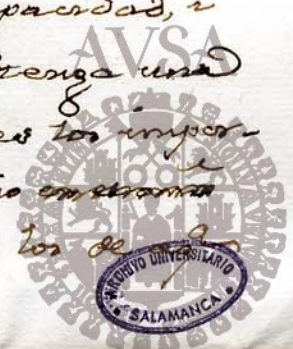 pacidad, e
AVSA
tenga una
es los imper-
io
los de
ARCHIVO UNIVERSITARIO
SALAMANCA